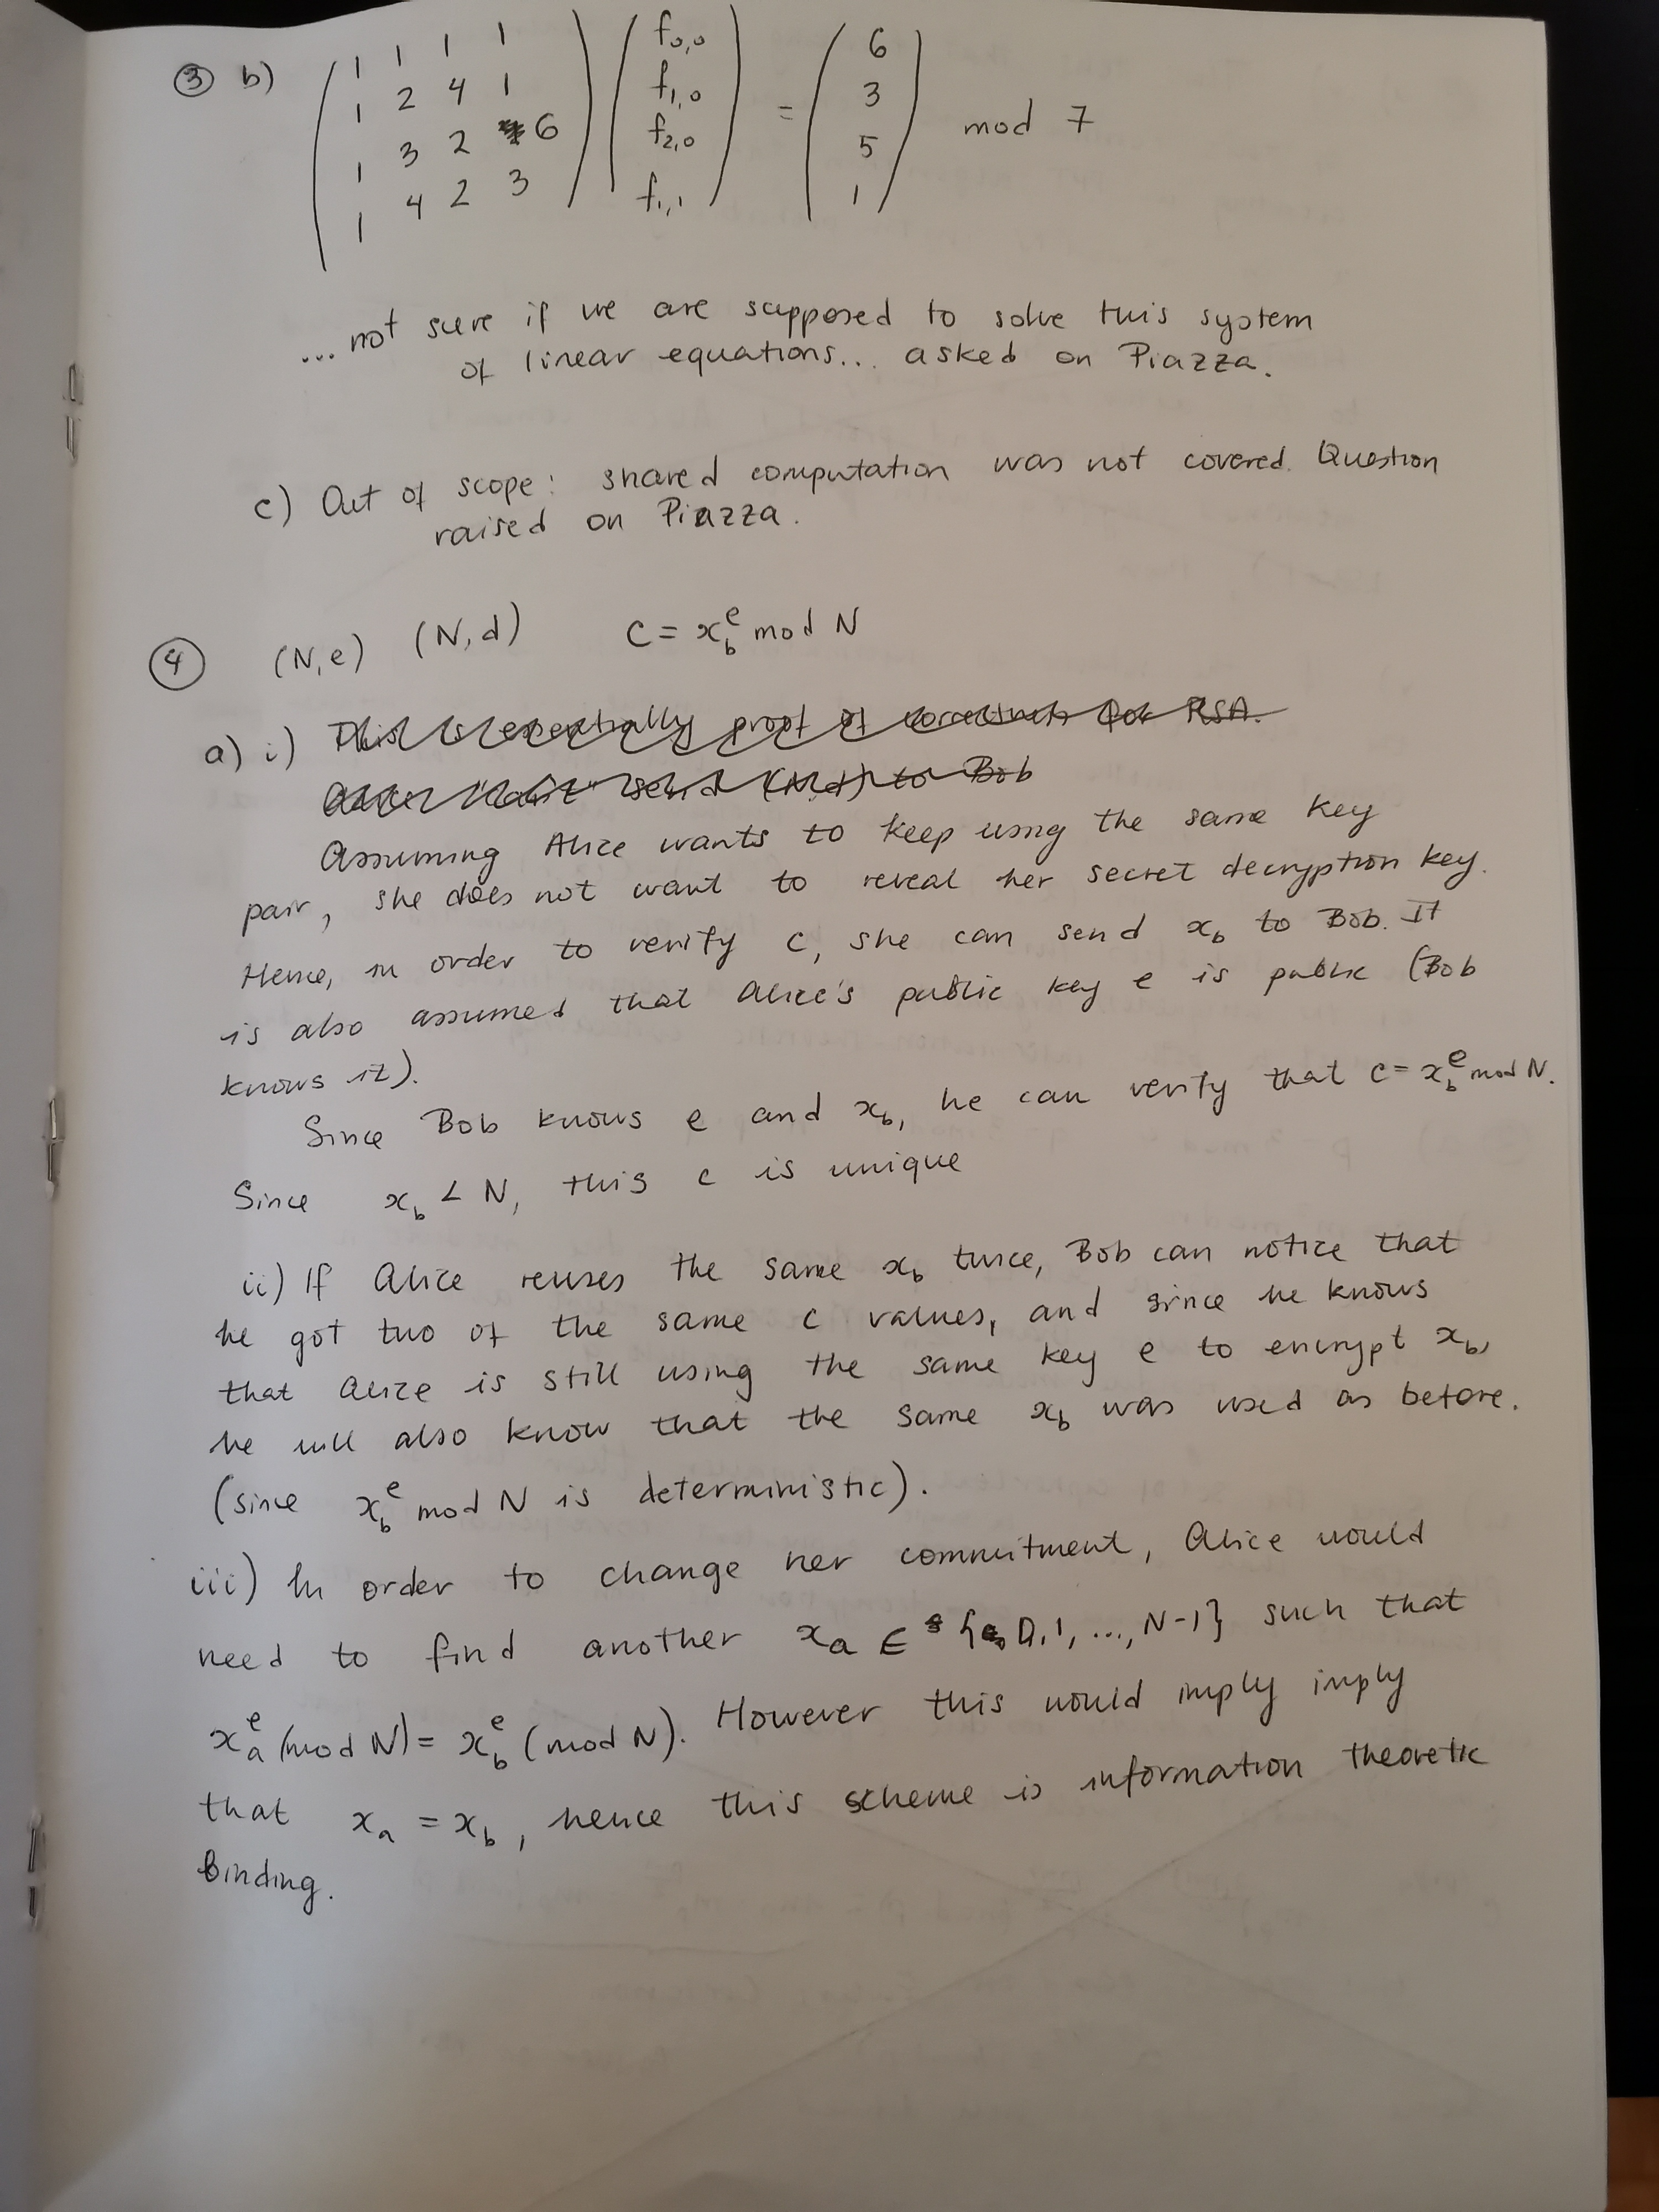 ③ b) ( 1 1 1 1 ) ( f₀,₀ ) = ( 6 ) mod 7
( 1 2 4 1 ) ( f₁,₀ ) ( 3 )
( 1 3 2 6 ) ( f₂,₀ ) ( 5 )
( 1 4 2 3 ) ( f₁,₁ ) ( 1 )
... not sure if we are supposed to solve this system
of linear equations... asked on Piazza.
c) Out of scope: shared computation was not covered. Question
raised on Piazza.
④ (N,e) (N,d) C = x_b^e mod N
a) i) This is essentially proof of correctness for RSA.
send (N,d) to Bob
Assuming Alice wants to keep using the same key
pair, she does not want to reveal her secret decryption key.
Hence, in order to verify c, she can send x_b to Bob. It
is also assumed that Alice's public key e is public (Bob
knows it).
Since Bob knows e and x_b, he can verify that c = x_b^e mod N.
Since x_b < N, this c is unique
ii) If Alice reuses the same x_b twice, Bob can notice that
he got two of the same c values, and since he knows
that Alice is still using the same key e to encrypt x_b,
he will also know that the same x_b was used as before.
(since x_b^e mod N is deterministic).
iii) In order to change her commitment, Alice would
need to find another x_a ∈ {0,1,...,N-1} such that
x_a^e (mod N) = x_b^e (mod N). However this would imply imply
that x_a = x_b, hence this scheme is information theoretic
binding.